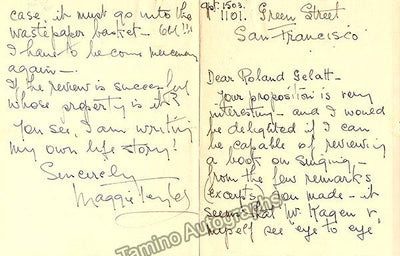 apt. 1503.
1101. Green Street
San-Francisco
Dear Roland Gelatt—
your proposition is very
interesting – and I would
be delighted if I can
be capable of reviewing
a book on singing,–
(from the few remarks
excepts) you made – it
seems that Mr. Kagen &
myself see "eye to eye"
case, it must go into the
wastepaper basket –
I have to become mercenary
again —
If the review is successful
whose property is it?
You see, I am writing
my own life story!
Sincerely
Maggie Teyte
Tamino Autographs